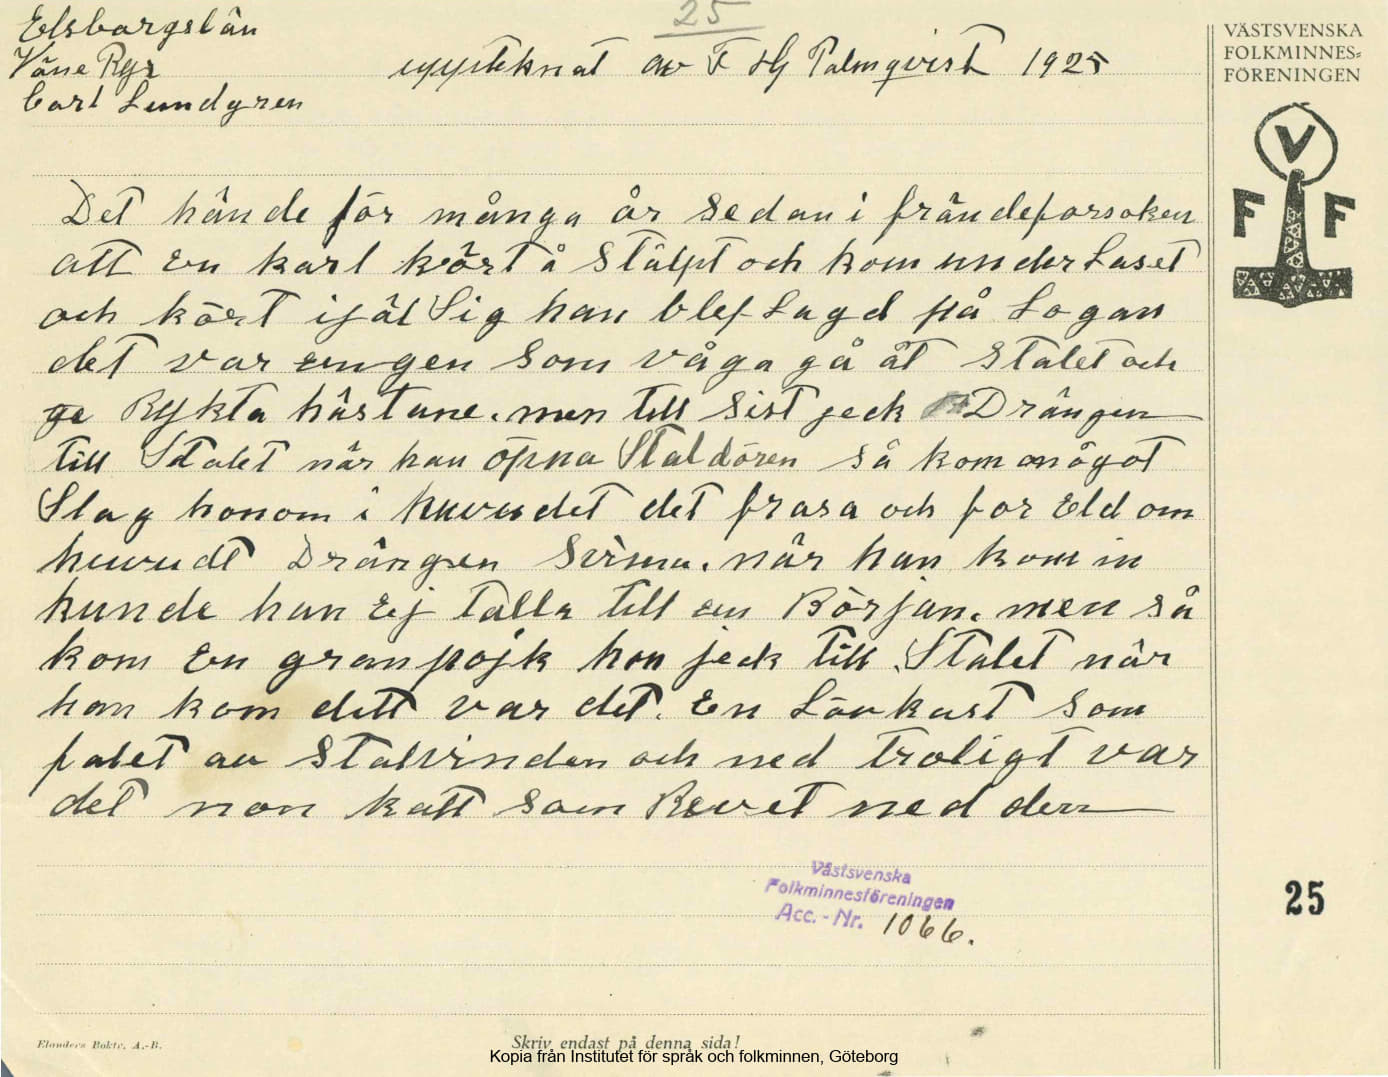 25
Elsborgslän
Väne Ryr
Carl Lundgren
uppteknat av F Hj Palmqvist 1925
VÄSTSVENSKA
FOLKMINNES=
FÖRENINGEN
V
F F
Det hände för många år sedan i frändeforsoken
att En karl kört å Stälpt och kom under Laset
och kört ijäl Sig han blef Lagd på Logan
det var engen som våga gå åt Stalet och
ge Rykta hästane. men till sist jeck Drängen
till Stalet när han öpna Staldören så kom något
Slag honom i huvudet det frasa och for Eld om
huvudt Drängen Svima. när han kom in
kunde han Ej Talla till en Början. men så
kom En granpojk han jeck till Stalet när
han kom ditt var det. En Lövkast som
falet av Stalvinden och ned troligt var
det non katt som Revet ned den
Västsvenska
Folkminnesföreningen
Acc.-Nr. 1066.
25
Elanders Boktr. A.-B.
Skriv endast på denna sida!
Kopia från Institutet för språk och folkminnen, Göteborg